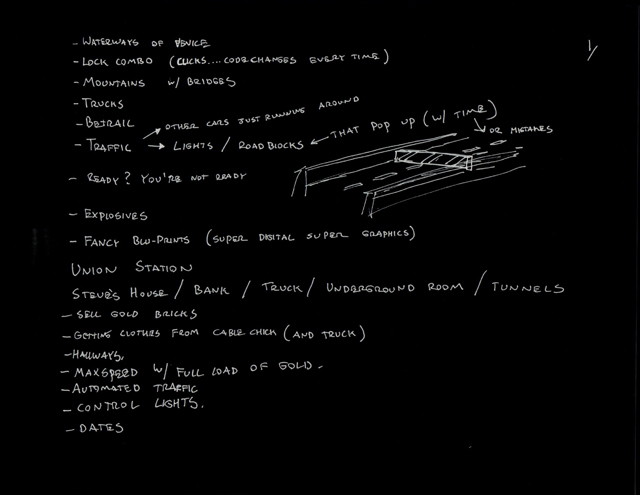 1/
- WATERWAYS OF VENICE
- LOCK COMBO (CLICKS.... CODE CHANGES EVERY TIME)
- MOUNTAINS W/ BRIDGES
- TRUCKS
- BETRAIL
OTHER CARS JUST RUNNING AROUND
- TRAFFIC → LIGHTS / ROADBLOCKS ← THAT POP UP (W/ TIME)
OR MISTAKES
- READY? YOU'RE NOT READY
- EXPLOSIVES
- FANCY BLU-PRINTS (SUPER DIGITAL SUPER GRAPHICS)
UNION STATION
STEVE'S HOUSE / BANK / TRUCK / UNDERGROUND ROOM / TUNNELS
- SELL GOLD BRICKS
- GETTING CLOTHES FROM CABLE CHICK (AND TRUCK)
- HALLWAYS.
- MAX SPEED W/ FULL LOAD OF GOLD.
- AUTOMATED TRAFFIC
- CONTROL LIGHTS.
- DATES